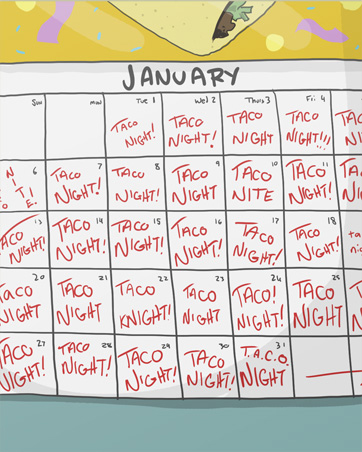 JANUARY
Sun
mon
Tue 1
TACO
NIGHT!
Wed 2
TACO
NIGHT!
Thurs 3
TACO
NIGHT
Fri 4
TACO
NIGHT!!!
6
7
TACO
NIGHT!
8
TACO
NIGHT!
9
TACO
NIGHT
10
TACO
NITE
11
TACO
NIGHT!
13
TACO
NIGHT!
14
TACO
NIGHT!
15
TACO
NIGHT!
16
TACO
NIGHT!
17
TACO
NIGHT!
18
TACO
NIGHT!
20
TACO
NIGHT
21
TACO
NIGHT
22
TACO
KNIGHT!
23
TACO
NIGHT
24
TACO!
NIGHT!
25
TACO
NIGHT
27
TACO
NIGHT!
28
TACO
NIGHT!
29
TACO
NIGHT!
30
TACO
NIGHT!
31
T.A.C.O.
NIGHT